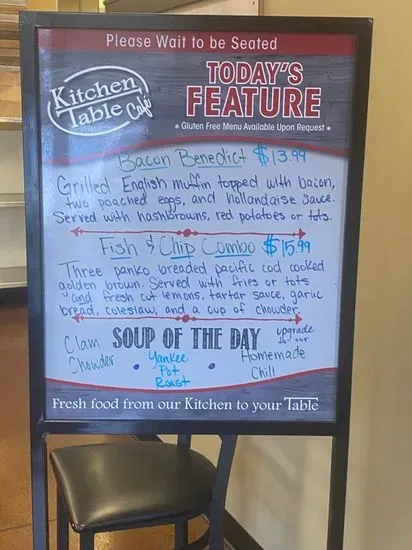 Please Wait to be Seated
Kitchen
Table Café
TODAY'S
FEATURE
* Gluten Free Menu Available Upon Request *
Bacon Benedict $13.99
Grilled English muffin topped with bacon,
two poached eggs, and hollandaise sauce.
Served with hashbrowns, red potatoes or tots.
Fish & Chip Combo $15.99
Three panko breaded pacific cod cooked
golden brown. Served with fries or tots
and fresh cut lemons, tartar sauce, garlic
bread, coleslaw, and a cup of chowder.
SOUP OF THE DAY
Clam
Chowder
• Yankee
Pot
Roast
•
upgrade
to our
Homemade
Chili
Fresh food from our Kitchen to your Table